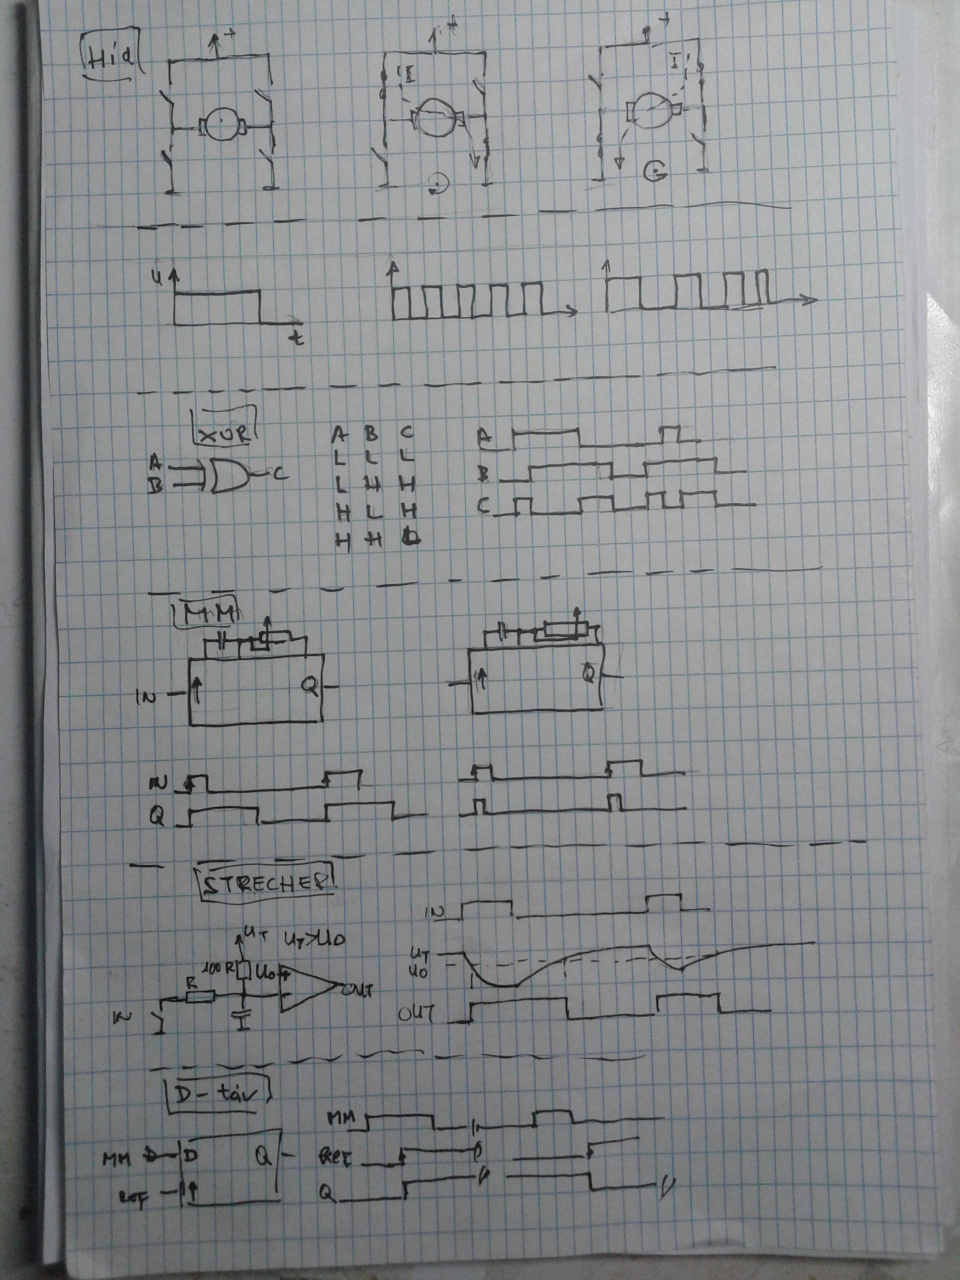 Híd
+ + +
I I
U
t
XOR
A B C
L L L
L H H
H L H
H H L
A
B
C
A
B
C
MM
IN Q
Q
IN
Q
STRECHER
UT UT>U0
100R U0 +
R -
IN OUT
IN
UT
U0
OUT
D-táv
MM D Q
Ref
MM
Ref
Q